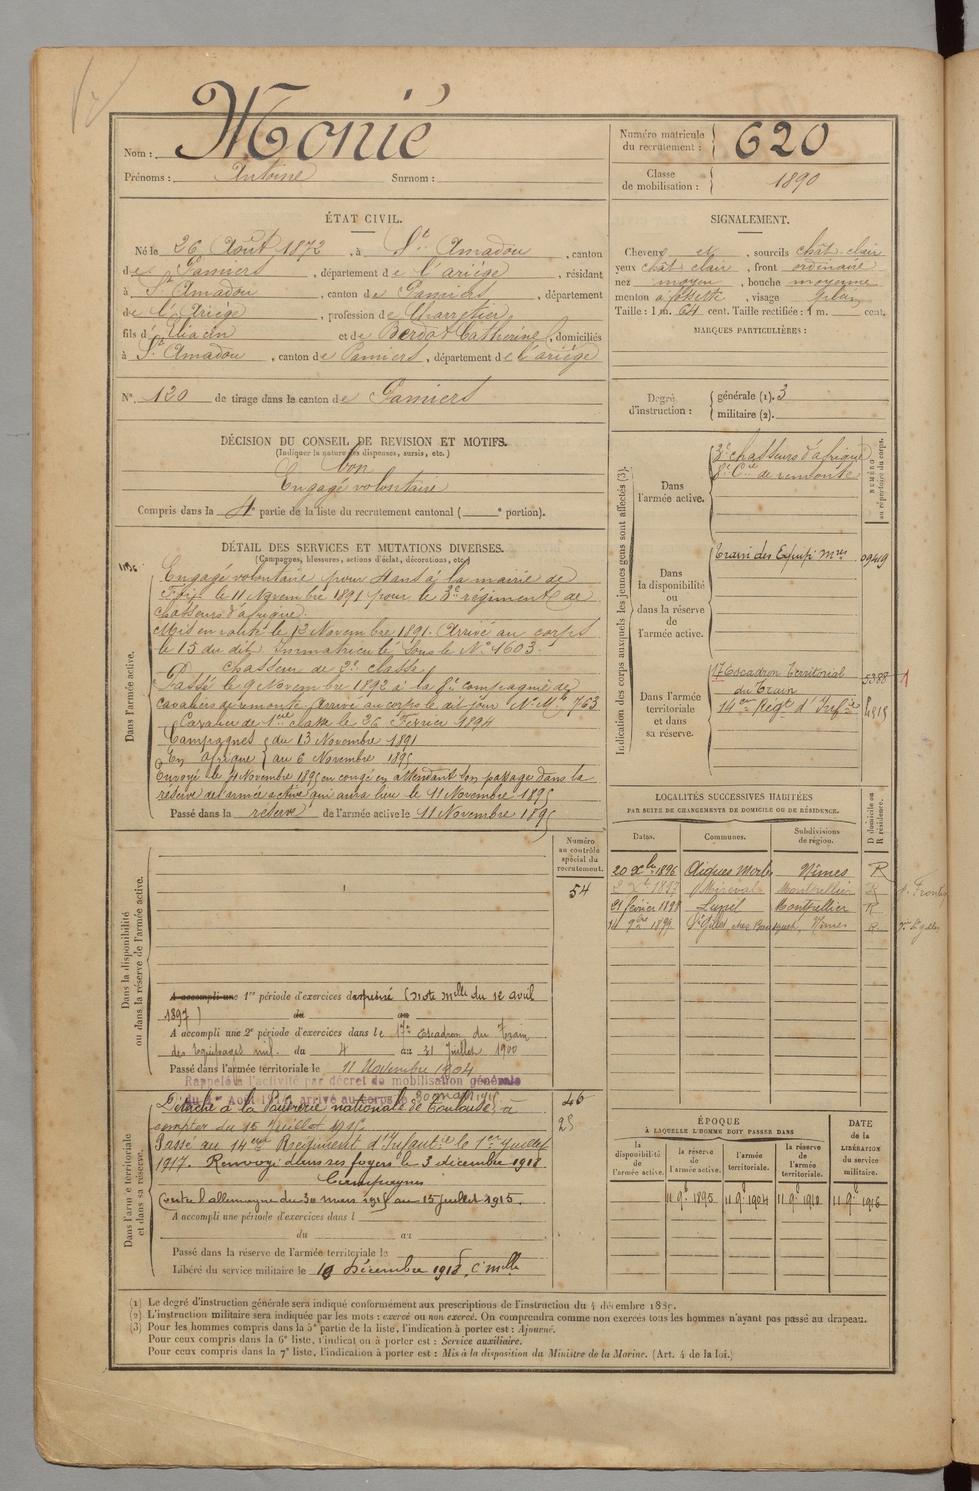 Nom : Monié
Prénoms : Antoine Surnom :
Numéro matricule du recrutement : 620
Classe de mobilisation : 1890
ÉTAT CIVIL.
Né le 26 Août 1872, à St Amadou, canton
de Pamiers, département de l'ariége, résidant
à St Amadou, canton de Pamiers, département
de l'Ariége, profession de Charretier
fils d'Eliacin et de Berdot Catherine, domiciliés
à St Amadou, canton de Pamiers, département de l'ariége
N° 120 de tirage dans le canton de Pamiers
SIGNALEMENT.
Cheveux et, sourcils chât. clair
yeux chât clair, front ordinaire
nez moyen, bouche moyenne
menton à fossette, visage plein
Taille : 1 m. 64 cent. Taille rectifiée : 1 m. cent.
MARQUES PARTICULIÈRES :
Degré d'instruction : générale (1). 3
militaire (2).
DÉCISION DU CONSEIL DE REVISION ET MOTIFS.
(Indiquer la nature des dispenses, sursis, etc.)
bon
Engagé volontaire
Compris dans la 4e partie de la liste du recrutement cantonal ( e portion).
DÉTAIL DES SERVICES ET MUTATIONS DIVERSES.
(Campagnes, blessures, actions d'éclat, décorations, etc.)
Dans l'armée active.
Engagé volontaire pour 4 ans à la mairie de
Foix le 11 Novembre 1891 pour le 3e régiment de
chasseurs d'afrique.
Mis en route le 12 Novembre 1891. Arrivé au corps
le 15 du dit Immatriculé sous le N° 1603.
Chasseur de 2e classe
Passé le 9 Novembre 1892 à la 8e compagnie de
cavaliers de remonte, arrivé au corps le dit jour N° Mle 763
Cavalier de 1ere classe le 26 Février 1894
Campagnes du 13 Novembre 1891
En afrique au 6 Novembre 1895
Envoyé le 4 Novembre 1895 en congé en attendant son passage dans la
réserve de l'armée active qui aura lieu le 11 Novembre 1895
Passé dans la réserve de l'armée active le 11 Novembre 1895
Indication des corps auxquels les jeunes gens sont affectés (3).
NUMÉRO au répertoire du corps.
Dans l'armée active.
3e chasseurs d'afrique
8e Cie de remonte
Dans la disponibilité ou dans la réserve de l'armée active.
Train des Equip. mres 09419
Dans l'armée territoriale et dans sa réserve.
17 Escadron Territorial du Train 5388
14em Regt d'Infie 4515
LOCALITÉS SUCCESSIVES HABITÉES
PAR SUITE DE CHANGEMENTS DE DOMICILE OU DE RÉSIDENCE.
Dates. Communes. Subdivisions de région. D domicile ou R résidence.
20 Xbre 1896 Aigues Mortes Nîmes R
2 Xbre 1897 Mireval Montpellier R
21 février 1898 Lunel Montpellier R
14 9bre 1899 St Gilles Nîmes R
Dans la disponibilité ou dans la réserve de l'armée active.
Numéro au contrôle spécial du recrutement.
54
A accompli une 1re période d'exercices dispensé (note mlle du 12 avril
1897) du au
A accompli une 2e période d'exercices dans le 17e Escadron du Train
des Equipages mil. du 4 au 31 Juillet 1900
Passé dans l'armée territoriale le 11 Novembre 1904
Rappelé à l'activité par décret de mobilisation générale
du 1er Août 1914, arrivé au corps le 30 mars 1915
Dans l'armée territoriale et dans sa réserve.
Détaché à la Poudrerie nationale de Toulouse à
compter du 15 Juillet 1915.
Passé au 14eme Régiment d'Infantie le 1er juillet
1917. Renvoyé dans ses foyers le 3 décembre 1918.
Campagnes
Contre l'allemagne du 30 mars 1915 au 15 juillet 1915.
46
25
A accompli une période d'exercices dans l
du au
Passé dans la réserve de l'armée territoriale le
Libéré du service militaire le 10 Décembre 1918, C mlle
ÉPOQUE
À LAQUELLE L'HOMME DOIT PASSER DANS
la disponibilité de l'armée active. la réserve de l'armée active. l'armée territoriale. la réserve de l'armée territoriale. DATE de la LIBÉRATION du service militaire.
11 9b 1895 11 9b 1904 11 9b 1910 11 9b 1916
(1) Le degré d'instruction générale sera indiqué conformément aux prescriptions de l'instruction du 4 décembre 1889.
(2) L'instruction militaire sera indiquée par les mots : exercé ou non exercé. On comprendra comme non exercés tous les hommes n'ayant pas passé au drapeau.
(3) Pour les hommes compris dans la 5e partie de la liste, l'indication à porter est : Ajourné.
Pour ceux compris dans la 6e liste, l'indication à porter est : Service auxiliaire.
Pour ceux compris dans la 7e liste, l'indication à porter est : Mis à la disposition du Ministre de la Marine. (Art. 4 de la loi.)